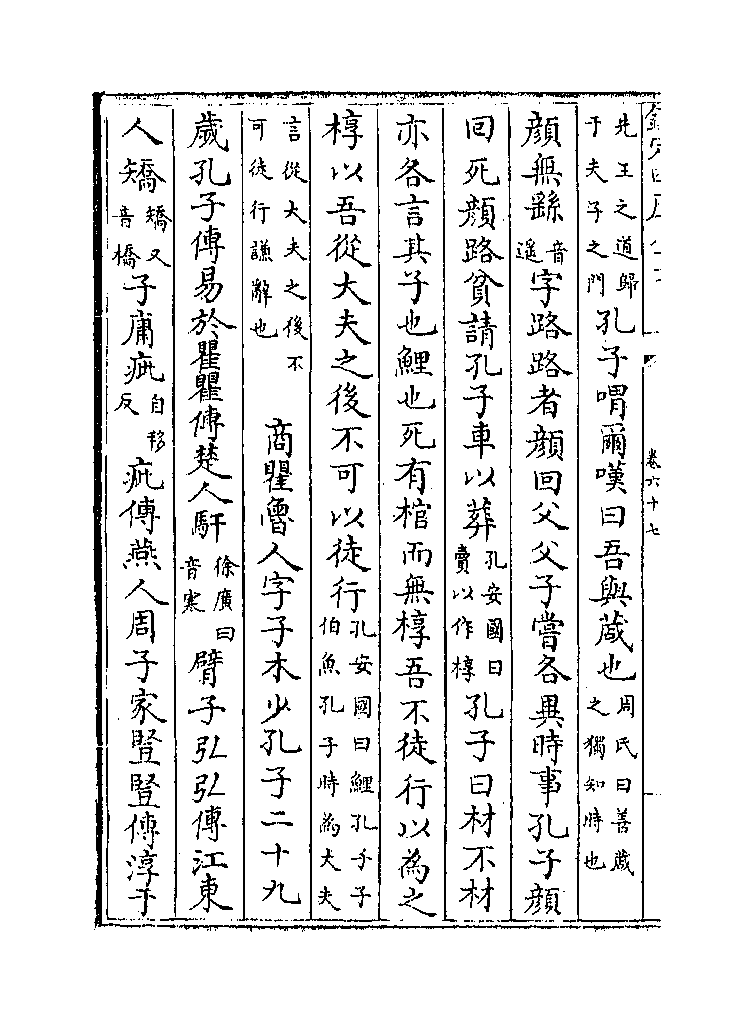 卷六十七
先王之道歸于夫子之門孔子喟爾嘆曰吾與蔵也周氏曰善蔵之獨知時也
顔無繇音遥字路路者顔回父父子嘗各異時事孔子顔
回死顔路貧請孔子車以葬孔安國曰賣以作椁孔子曰材不材
亦各言其子也鯉也死有棺而無椁吾不徒行以為之
椁以吾從大夫之後不可以徒行孔安國曰鯉孔子子伯魚孔子時為大夫
言從大夫之後不可徒行謙辭也商瞿魯人字子木少孔子二十九
歲孔子傳易於瞿瞿傳楚人馯徐廣曰音寒臂子弘弘傳江東
人矯矯又音橋子庸疵自移反疵傳燕人周子家豎豎傳淳于